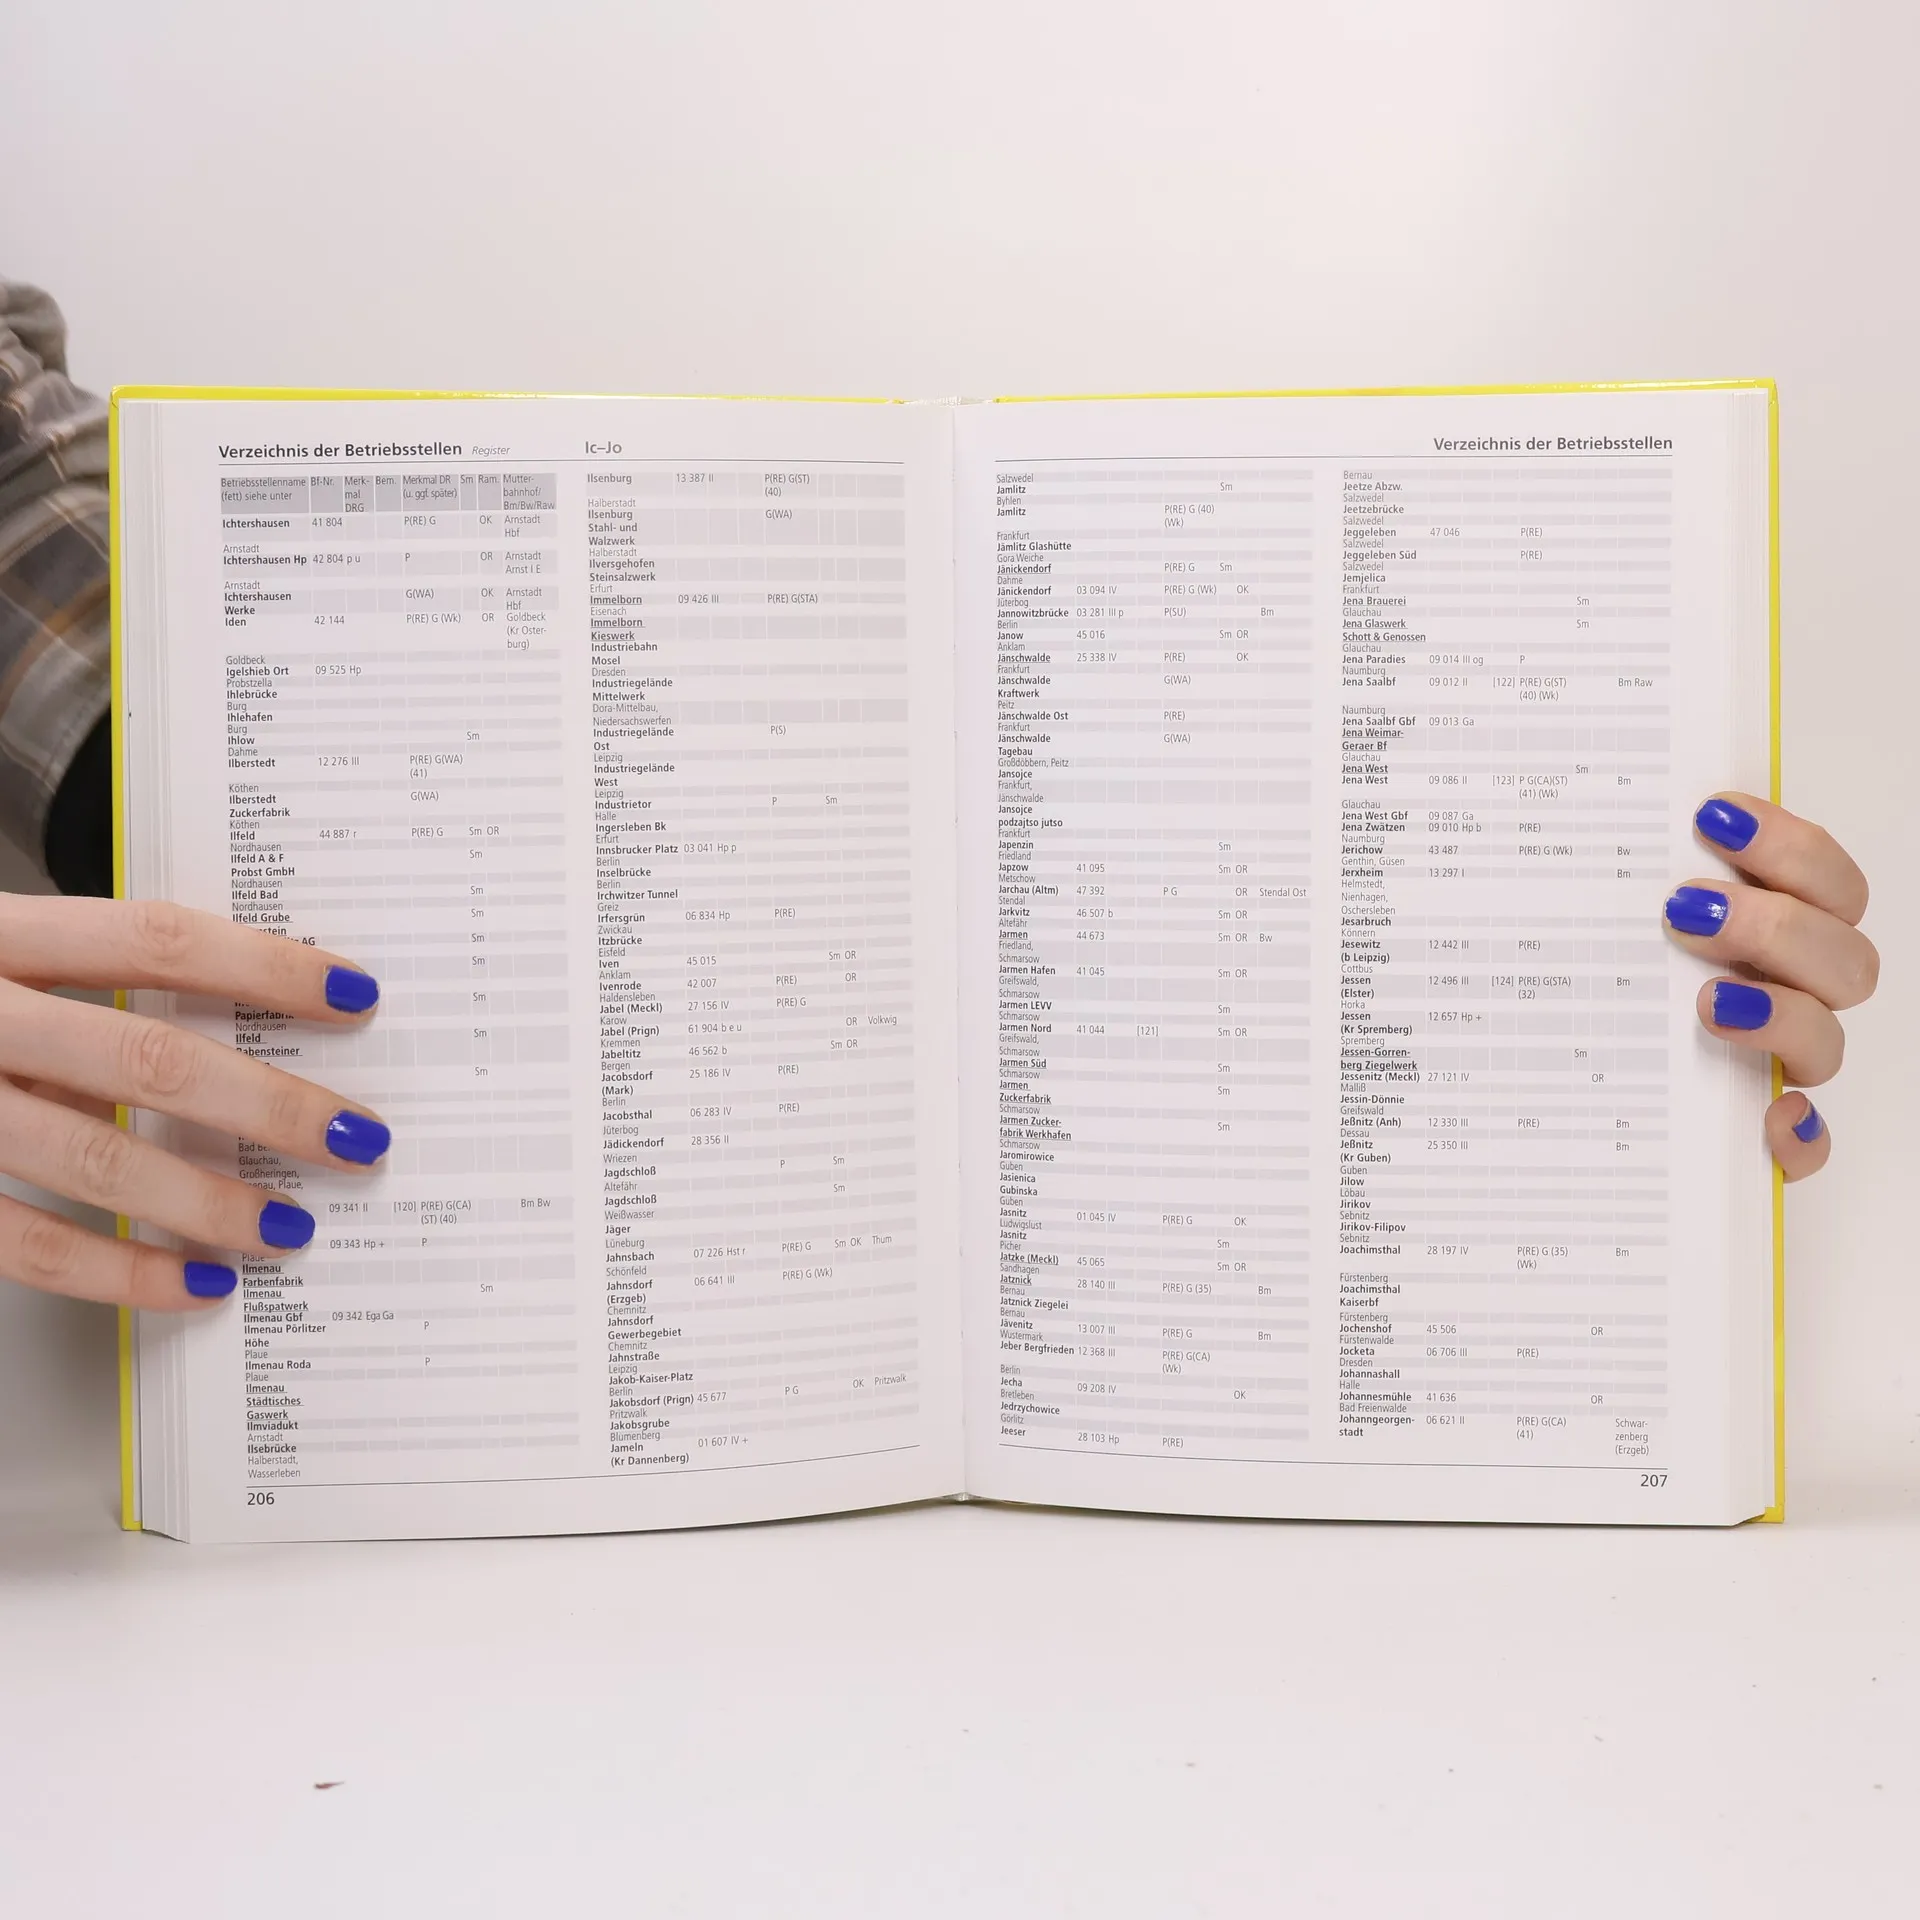 Verzeichnis der Betriebsstellen Register Ic–Jo
Betriebsstellenname Bf-Nr. Merk- Bem. Merkmal DR Sm Ram. Mutter-
(fett) siehe unter mal (u. ggf. später) bahnhof/
DRG Bm/Bw/Raw
Ichtershausen 41 804 P(RE) G OK Arnstadt
Hbf
Arnstadt
Ichtershausen Hp 42 804 p u P OR Arnstadt
Arnst I E
Arnstadt
Ichtershausen G(WA) OK Arnstadt
Werke Hbf
Iden 42 144 P(RE) G (Wk) OR Goldbeck
(Kr Oster-
burg)
Goldbeck
Igelshieb Ort 09 525 Hp
Probstzella
Ihlebrücke
Burg
Ihlehafen
Burg
Ihlow Sm
Dahme
Ilberstedt 12 276 III P(RE) G(WA)
(41)
Köthen
Ilberstedt G(WA)
Zuckerfabrik
Köthen
Ilfeld 44 887 r P(RE) G Sm OR
Nordhausen
Ilfeld A & F Sm
Probst GmbH
Nordhausen
Ilfeld Bad Sm
Nordhausen
Ilfeld Grube Sm
AG Sm
Sm
Sm
Papierfabrik
Nordhausen
Ilfeld Sm
Rabensteiner
Sm
Glauchau,
Großheringen,
Plaue,
09 341 II [120] P(RE) G(CA) Bm Bw
(ST) (40)
09 343 Hp + P
Plaue
Ilmenau
Farbenfabrik
Ilmenau Sm
Flußspatwerk
Ilmenau Gbf 09 342 Ega Ga
Ilmenau Pörlitzer P
Höhe
Plaue
Ilmenau Roda P
Plaue
Ilmenau
Städtisches
Gaswerk
Ilmviadukt
Arnstadt
Ilsebrücke
Halberstadt,
Wasserleben
206
Ilsenburg 13 387 II P(RE) G(ST)
(40)
Halberstadt
Ilsenburg G(WA)
Stahl- und
Walzwerk
Halberstadt
Ilversgehofen
Steinsalzwerk
Erfurt
Immelborn 09 426 III P(RE) G(STA)
Eisenach
Immelborn
Kieswerk
Industriebahn
Mosel
Dresden
Industriegelände
Mittelwerk
Dora-Mittelbau,
Niedersachswerfen
Industriegelände P(S)
Ost
Leipzig
Industriegelände
West
Leipzig
Industrietor P Sm
Halle
Ingersleben Bk
Erfurt
Innsbrucker Platz 03 041 Hp p
Berlin
Inselbrücke
Berlin
Irchwitzer Tunnel
Greiz
Irfersgrün 06 834 Hp P(RE)
Zwickau
Itzbrücke
Eisfeld
Iven 45 015 Sm OR
Anklam
Ivenrode 42 007 P(RE) OR
Haldensleben
Jabel (Meckl) 27 156 IV P(RE) G
Karow
Jabel (Prign) 61 904 b e u OR Volkwig
Kremmen
Jabeltitz 46 562 b Sm OR
Bergen
Jacobsdorf 25 186 IV P(RE)
(Mark)
Berlin
Jacobsthal 06 283 IV P(RE)
Jüterbog
Jädickendorf 28 356 II
Wriezen
Jagdschloß P Sm
Altefähr
Jagdschloß Sm
Weißwasser
Jäger
Lüneburg
Jahnsbach 07 226 Hst r P(RE) G Sm OK Thum
Schönfeld
Jahnsdorf 06 641 III P(RE) G (Wk)
(Erzgeb)
Chemnitz
Jahnsdorf
Gewerbegebiet
Chemnitz
Jahnstraße
Leipzig
Jakob-Kaiser-Platz
Berlin
Jakobsdorf (Prign) 45 677 P G OK Pritzwalk
Pritzwalk
Jakobsgrube
Blumenberg
Jameln 01 607 IV +
(Kr Dannenberg)
Verzeichnis der Betriebsstellen
Salzwedel
Jamlitz Sm
Byhlen
Jamlitz P(RE) G (40)
(Wk)
Frankfurt
Jämlitz Glashütte
Gora Weiche
Jänickendorf P(RE) G Sm
Dahme
Jänickendorf 03 094 IV P(RE) G (Wk) OK
Jüterbog
Jannowitzbrücke 03 281 III p P(SU) Bm
Berlin
Janow 45 016 Sm OR
Anklam
Jänschwalde 25 338 IV P(RE) OK
Frankfurt
Jänschwalde G(WA)
Kraftwerk
Peitz
Jänschwalde Ost P(RE)
Frankfurt
Jänschwalde G(WA)
Tagebau
Großdöbbern, Peitz
Jansojce
Frankfurt,
Jänschwalde
Jansojce
podzajtso jutso
Frankfurt
Japenzin Sm
Friedland
Japzow 41 095 Sm OR
Metschow
Jarchau (Altm) 47 392 P G OR Stendal Ost
Stendal
Jarkvitz 46 507 b Sm OR
Altefähr
Jarmen 44 673 Sm OR Bw
Friedland,
Schmarsow
Jarmen Hafen 41 045 Sm OR
Greifswald,
Schmarsow
Jarmen LEVV Sm
Schmarsow
Jarmen Nord 41 044 [121] Sm OR
Greifswald,
Schmarsow
Jarmen Süd Sm
Schmarsow
Jarmen Sm
Zuckerfabrik
Schmarsow
Jarmen Zucker- Sm
fabrik Werkhafen
Schmarsow
Jaromirowice
Guben
Jasienica
Gubinska
Guben
Jasnitz 01 045 IV P(RE) G OK
Ludwigslust
Jasnitz Sm
Picher
Jatzke (Meckl) 45 065 Sm OR
Sandhagen
Jatznick 28 140 III P(RE) G (35) Bm
Bernau
Jatznick Ziegelei
Bernau
Jävenitz 13 007 III P(RE) G Bm
Wustermark
Jeber Bergfrieden 12 368 III P(RE) G(CA)
(Wk)
Berlin
Jecha 09 208 IV OK
Bretleben
Jedrzychowice
Görlitz
Jeeser 28 103 Hp P(RE)
Bernau
Jeetze Abzw.
Salzwedel
Jeetzebrücke
Salzwedel
Jeggeleben 47 046 P(RE)
Salzwedel
Jeggeleben Süd P(RE)
Salzwedel
Jemjelica
Frankfurt
Jena Brauerei Sm
Glauchau
Jena Glaswerk Sm
Schott & Genossen
Glauchau
Jena Paradies 09 014 III og P
Naumburg
Jena Saalbf 09 012 II [122] P(RE) G(ST) Bm Raw
(40) (Wk)
Naumburg
Jena Saalbf Gbf 09 013 Ga
Jena Weimar-
Geraer Bf
Glauchau
Jena West Sm
Jena West 09 086 II [123] P G(CA)(ST) Bm
(41) (Wk)
Glauchau
Jena West Gbf 09 087 Ga
Jena Zwätzen 09 010 Hp b P(RE)
Naumburg
Jerichow 43 487 P(RE) G (Wk) Bw
Genthin, Güsen
Jerxheim 13 297 I Bm
Helmstedt,
Nienhagen,
Oschersleben
Jesarbruch
Könnern
Jesewitz 12 442 III P(RE)
(b Leipzig)
Cottbus
Jessen 12 496 III [124] P(RE) G(STA) Bm
(Elster) (32)
Horka
Jessen 12 657 Hp +
(Kr Spremberg)
Spremberg
Jessen-Gorren- Sm
berg Ziegelwerk
Jessenitz (Meckl) 27 121 IV OR
Malliß
Jessin-Dönnie
Greifswald
Jeßnitz (Anh) 12 330 III P(RE) Bm
Dessau
Jeßnitz 25 350 III Bm
(Kr Guben)
Guben
Jilow
Löbau
Jirikov
Sebnitz
Jirikov-Filipov
Sebnitz
Joachimsthal 28 197 IV P(RE) G (35) Bm
(Wk)
Fürstenberg
Joachimsthal
Kaiserbf
Fürstenberg
Jochenshof 45 506 OR
Fürstenwalde
Jocketa 06 706 III P(RE)
Dresden
Johannashall
Halle
Johannesmühle 41 636 OR
Bad Freienwalde
Johanngeorgen- 06 621 II P(RE) G(CA) Schwar-
stadt (41) zenberg
(Erzgeb)
207